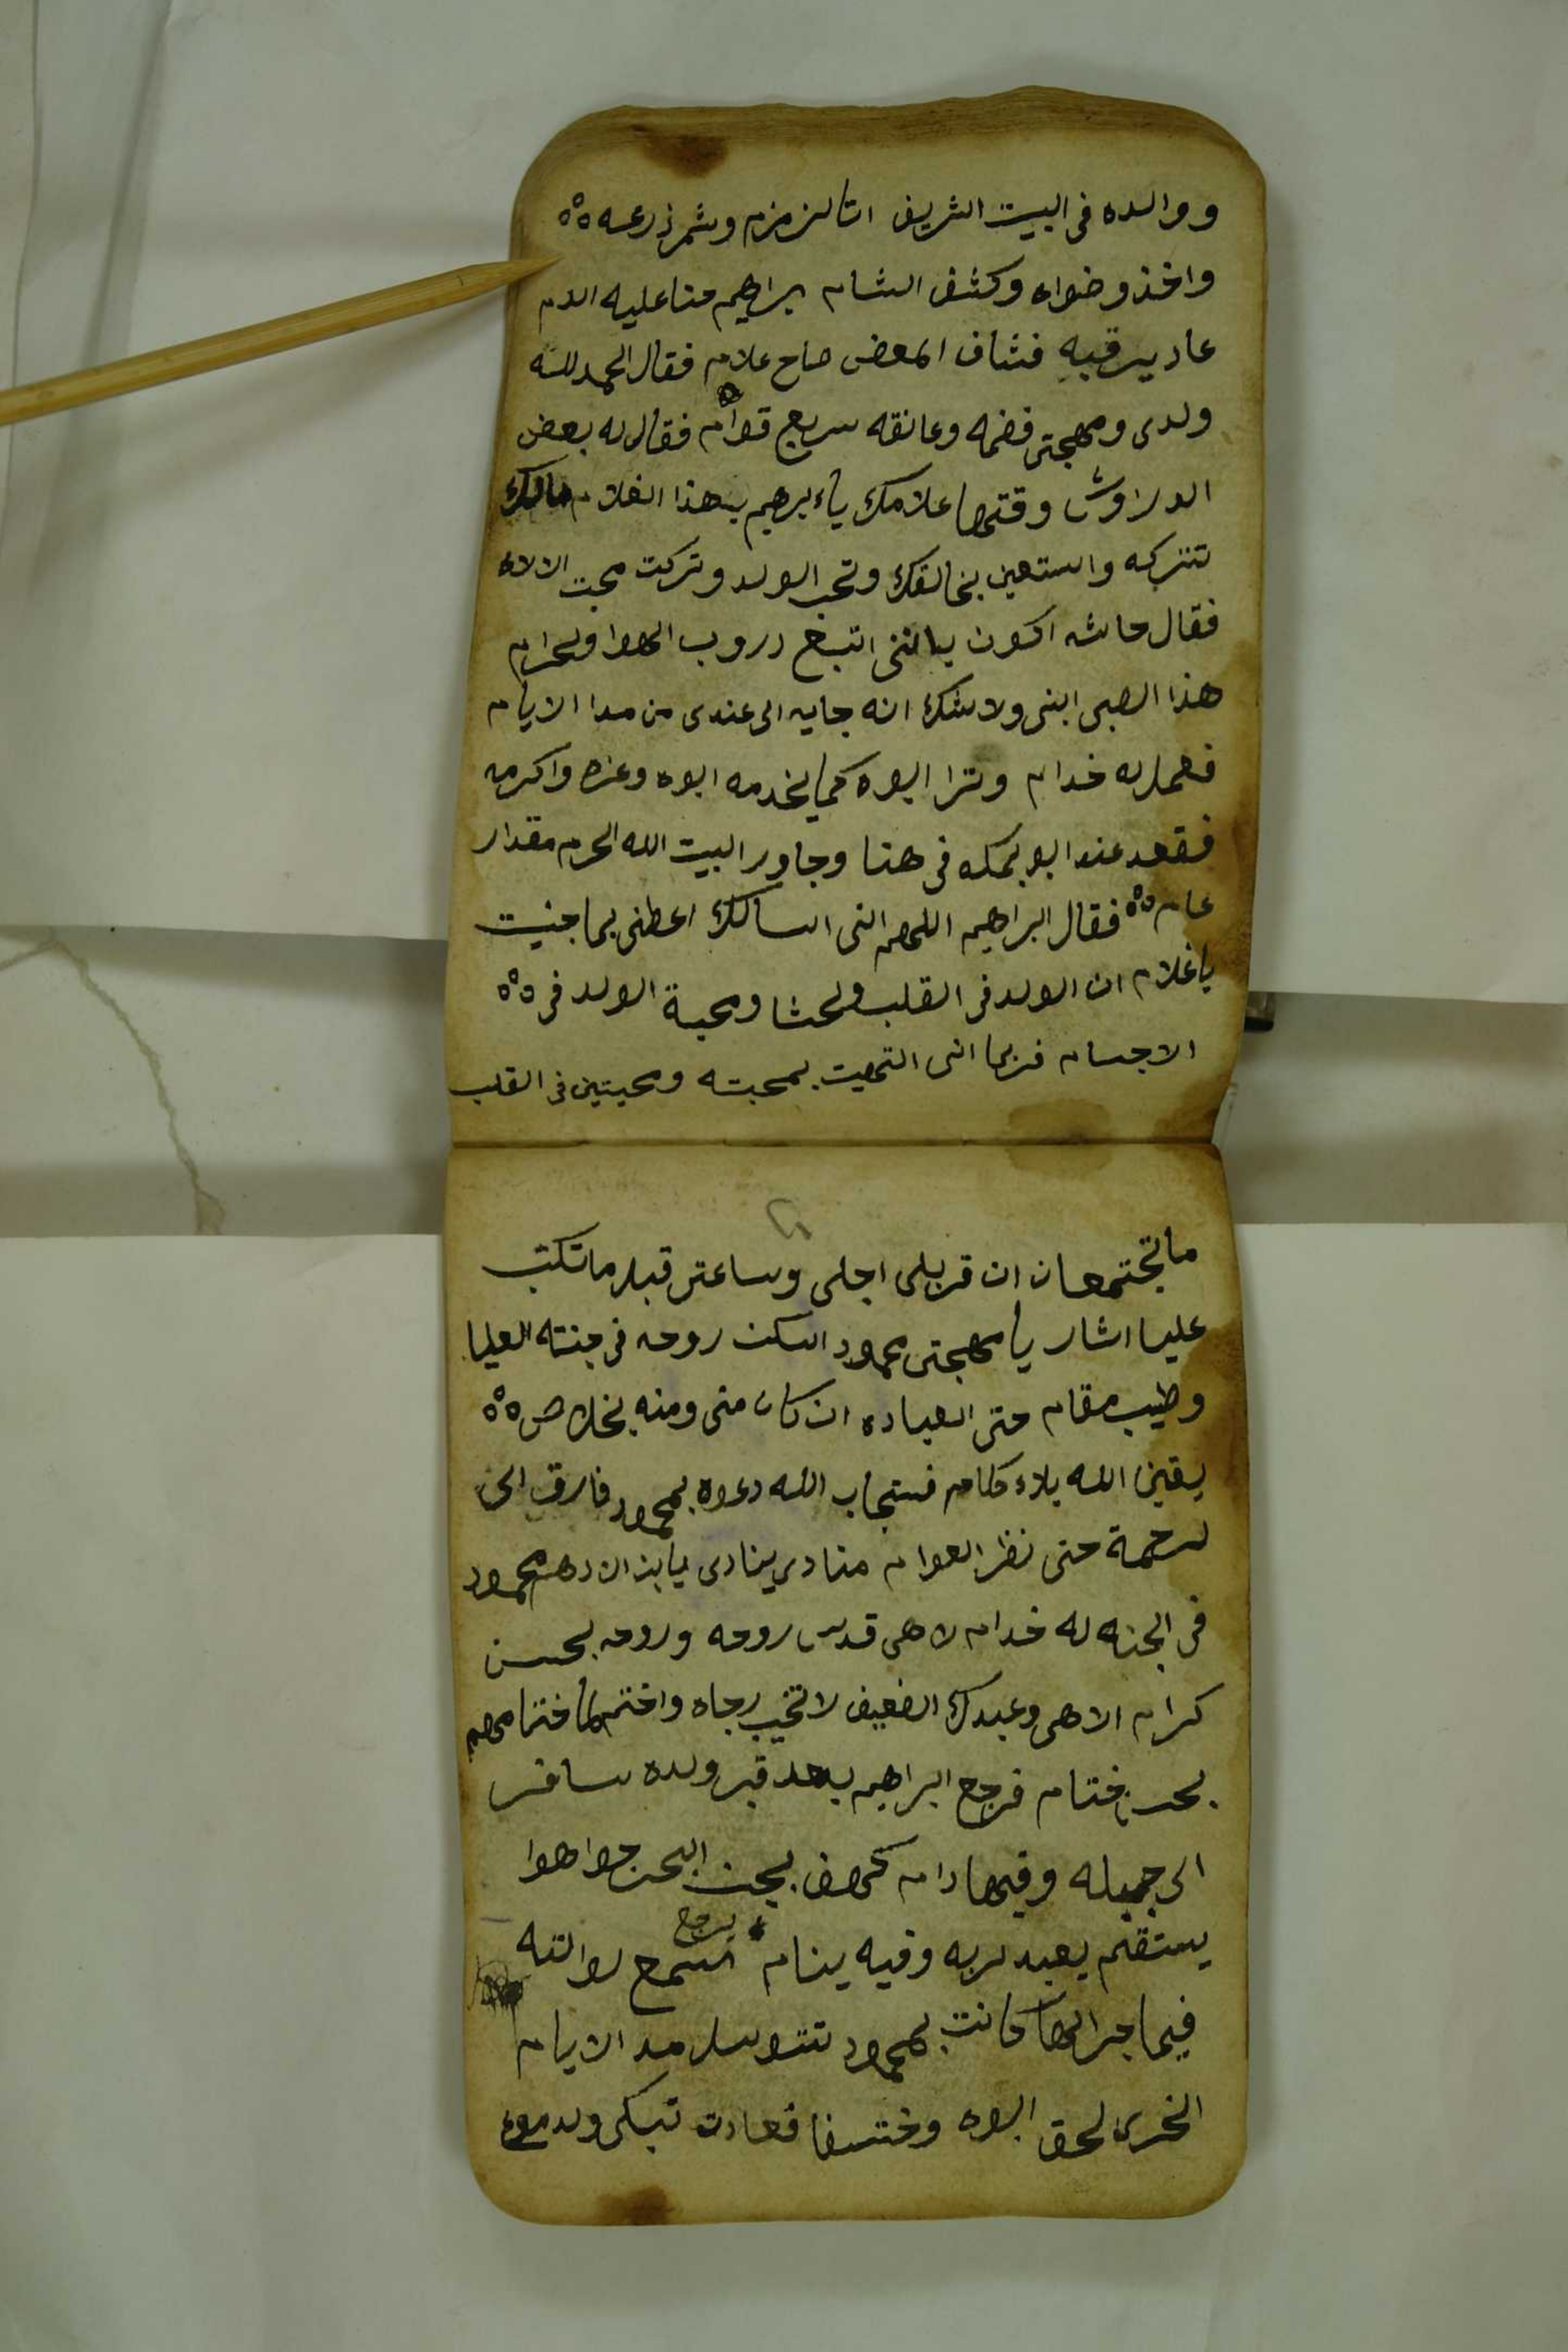 ووالده فى البيت الشريف اتا لزمزم وشمر ذرعه
واخذ وضواه وكشف الشام براهيم حنا عليه الدم
عاد يرقبه فشاف المعض صاح علام فقال الحمد لله
ولدى ومهجتى فضمه وعانقه سريع قوام فقال له بعض
الدراوش وقتها علامك يا ابرهيم بهذا الغلام مالك
تتركه واستعين بخالقك وتحب الولد وتركت محبت الالاه
فقال حاشه اكون باننى اتبع دروب الهوا ولحرام
هذا الصبى ابنى ولا شك انه جايه الى عندى من مدا الايام
فعمل له خدام وترا ابوه كما يخدمه ابوه وعزه واكرمه
فقعد عند ابو بمكه فى هنا وجاور البيت الله الحرم مقدار
عام فقال ابراهيم اللهم انى اسالك اعطنى بما جنيت
يا غلام ان الولد فى القلب ولحشا ومحبة الولد فى
الاجسام فربما انى التهيت بمحبته ومحبتين فى القلب
ما تجتمعان ان قربلى اجلى وساعتى قبل ما تكتب
عليا اشار يا مهجتى محمود اسكن روحه فى جنته العليا
وطيب مقام حتى العباده ان كان منى ومنه بخلاص
يقين الله بلاء كلام فستجاب الله دعوه بمحمود فارق الى
لرحمة حتى نظر العوام منادى ينادى يا بن ادهم محمود
فى الجنه له خدام لاهى قدس روحه وروحه بحسن
كرام الاهى وعبدك الضعيف لا تخيب رجاه واختم لنا ختامهم
بحسن ختام فرجع ابراهيم بعد قبر ولده سافر
الى جبله وفيها دام كهف بجنب البحر جوا هوا
يستقم يعبد لربه وفيه ينام يرجع نسمع لوالته
فيما جرالها كانت بمحمود تتوسل مد الايام
الخرى لحق ابوه وختفا فعادت تبكى ولدموع